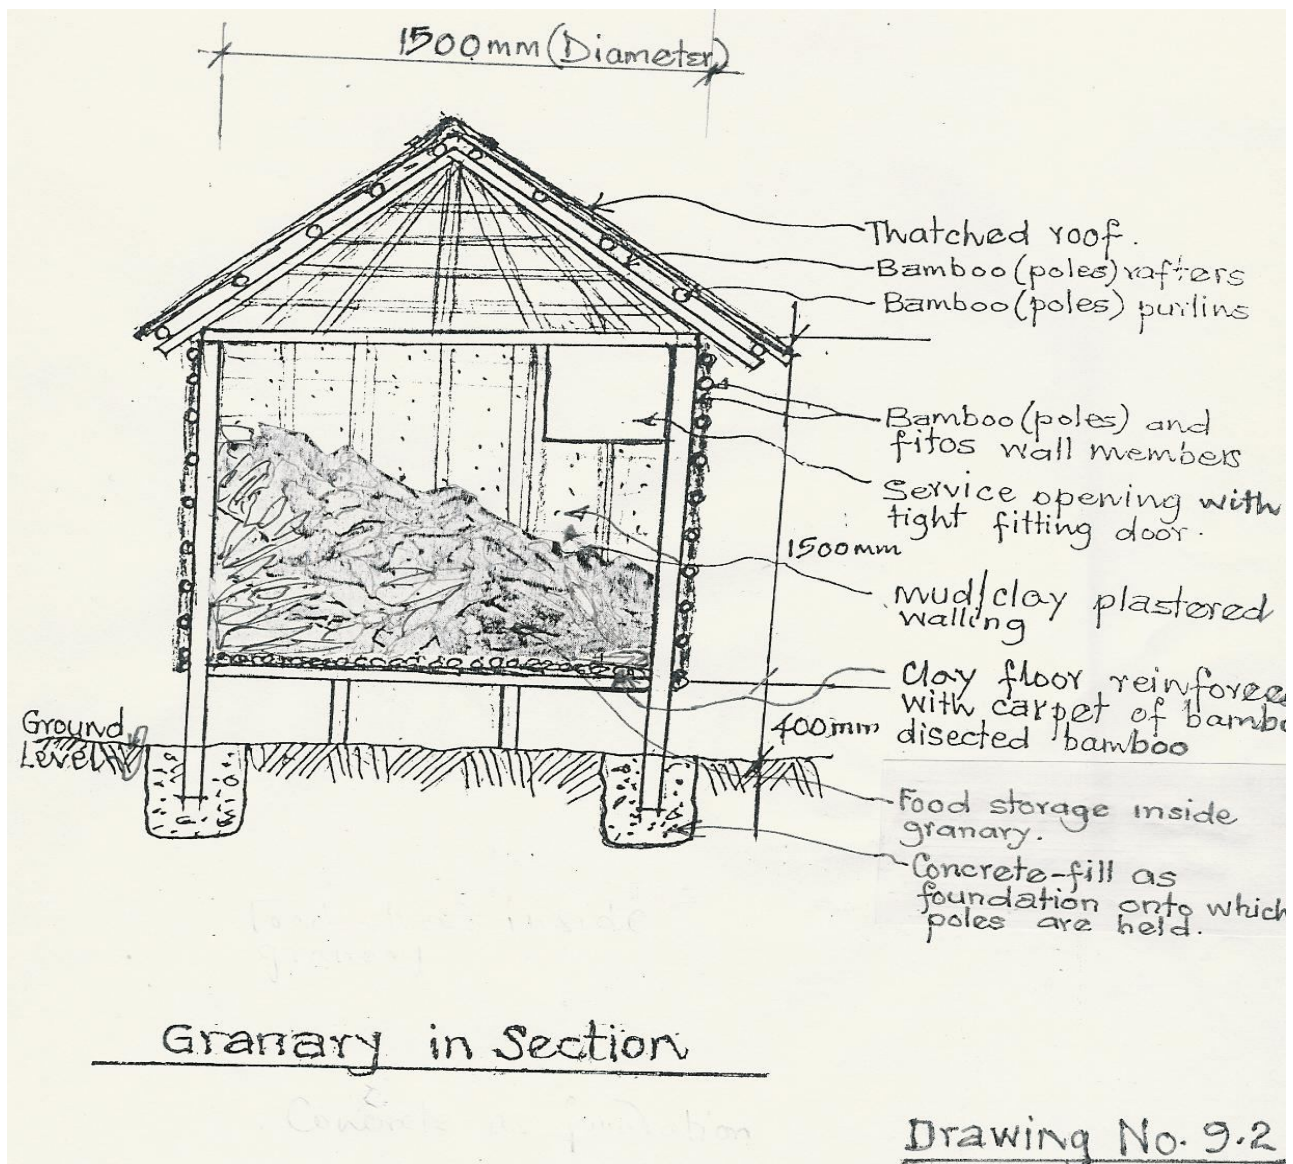 1500mm (Diameter)
Thatched roof.
Bamboo (poles) rafters
Bamboo (poles) purlins
Bamboo (poles) and
fitos wall members
Service opening with
tight fitting door.
1500mm
mud/clay plastered
walling
Clay floor reinforce
with carpet of bambo
disected bamboo
Ground
Level
400mm
Food storage inside
granary.
Concrete-fill as
foundation onto which
poles are held.
Granary in Section
Drawing No. 9.2